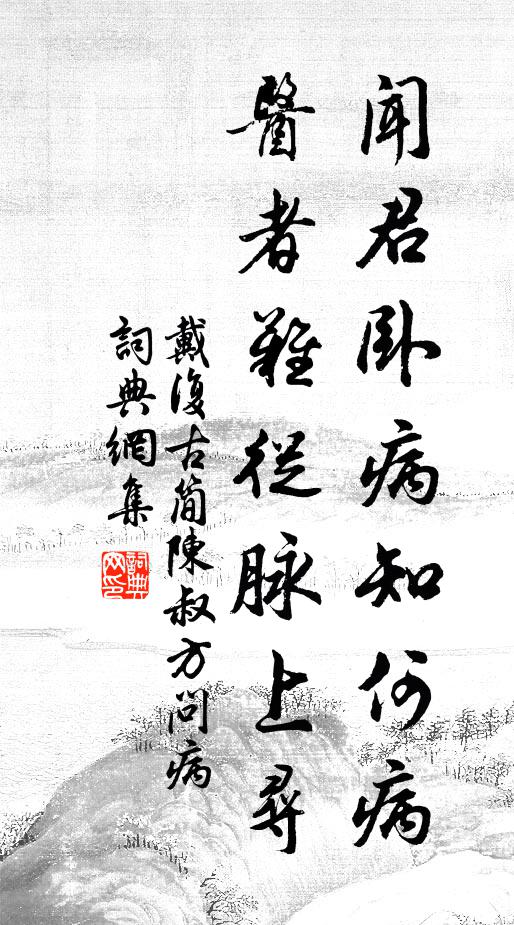 聞君卧病知何病
醫者難從脉上尋
戴復古簡陳叔方問病
詞典網集
詞典网印